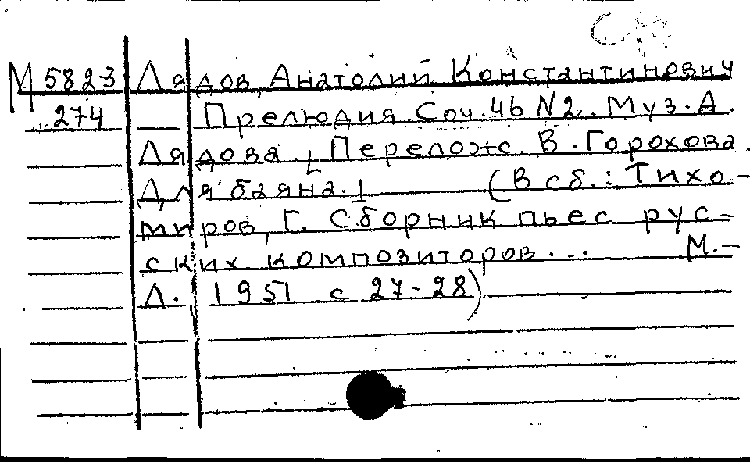 М 5823 Лядов, Анатолий Константинович
274 Прелюдия Соч. 46 N2. Муз. А.
Лядова [Перелож. В. Горохова
Для баяна.] (В сб.: Тихо-
миров, Г. Сборник пьес рус-
ских композиторов... М.-
Л. 1951 с 27-28)